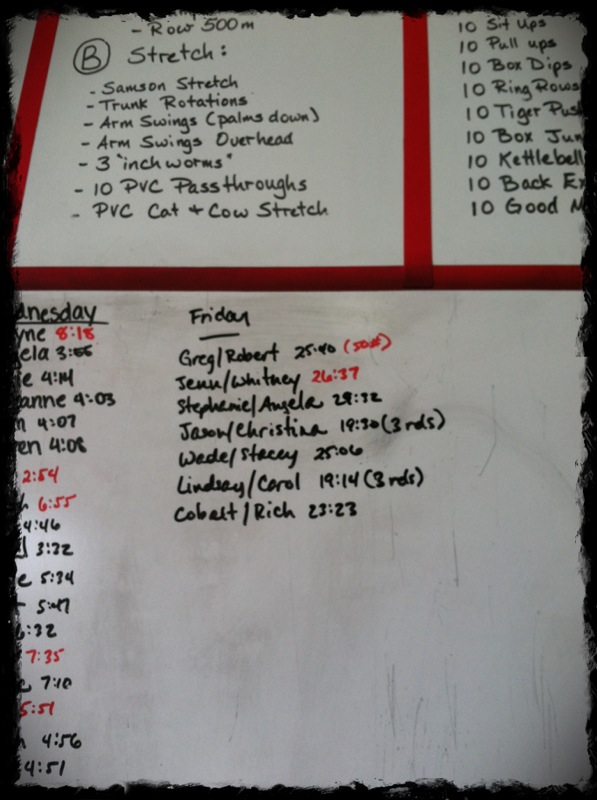 - Row 500m
B Stretch:
- Samson Stretch
- Trunk Rotations
- Arm Swings (palms down)
- Arm Swings Overhead
- 3 "inch worms"
- 10 PVC Passthroughs
- PVC Cat + Cow Stretch
10 Sit Ups
10 Pull ups
10 Box Dips
10 Ring Rows
10 Tiger Pus
10 Box Jum
10 Kettlebell
10 Back Ex
10 Good M
dnesday
yne 8:18
ela 3:55
ie 4:14
anne 4:03
n 4:07
en 4:08
2:54
h 6:55
4:46
3:32
e 5:34
5:47
6:32
7:35
7:10
5:51
4:56
4:51
Friday
Greg/Robert 25:40 (50#)
Jenn/Whitney 26:37
Stephanie/Angela 29:32
Jason/Christina 19:30 (3 rds)
Wade/Stacey 25:06
Lindsay/Carol 19:14 (3 rds)
Cobalt/Rich 23:23